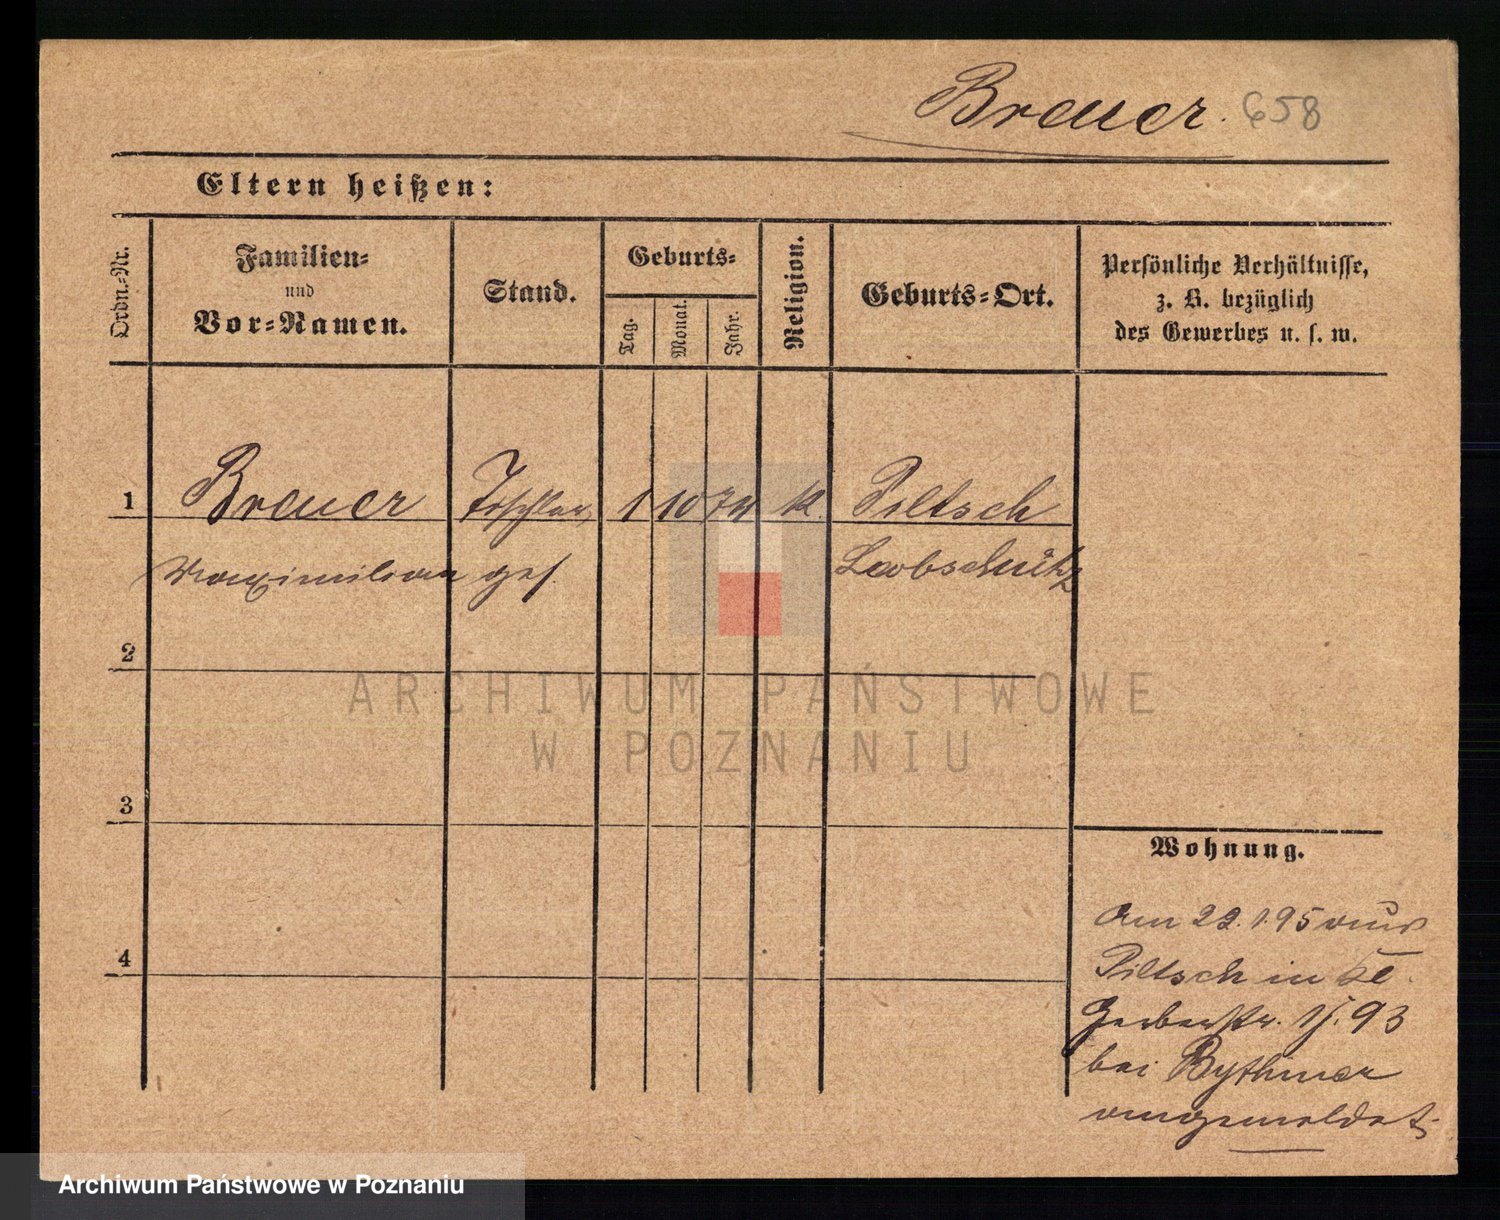 Breuer. 658
Eltern heißen:
Ordn.-Nr.
Familien-
und
Vor-Namen.
Stand.
Geburts-
Tag.
Monat.
Jahr.
Religion.
Geburts-Ort.
Persönliche Verhältnisse,
z. B. bezüglich
des Gewerbes u. s. w.
1 Breuer Tischler 1 10 74 K. Piltsch
Maximilian ges. Leobschütz
2
3
4
Wohnung.
Am 22.1.95 aus
Piltsch in Kl.
Gerberstr. 93
bei Bythiner
angemeldet.
ARCHIWUM PAŃSTWOWE
W POZNANIU
Archiwum Państwowe w Poznaniu